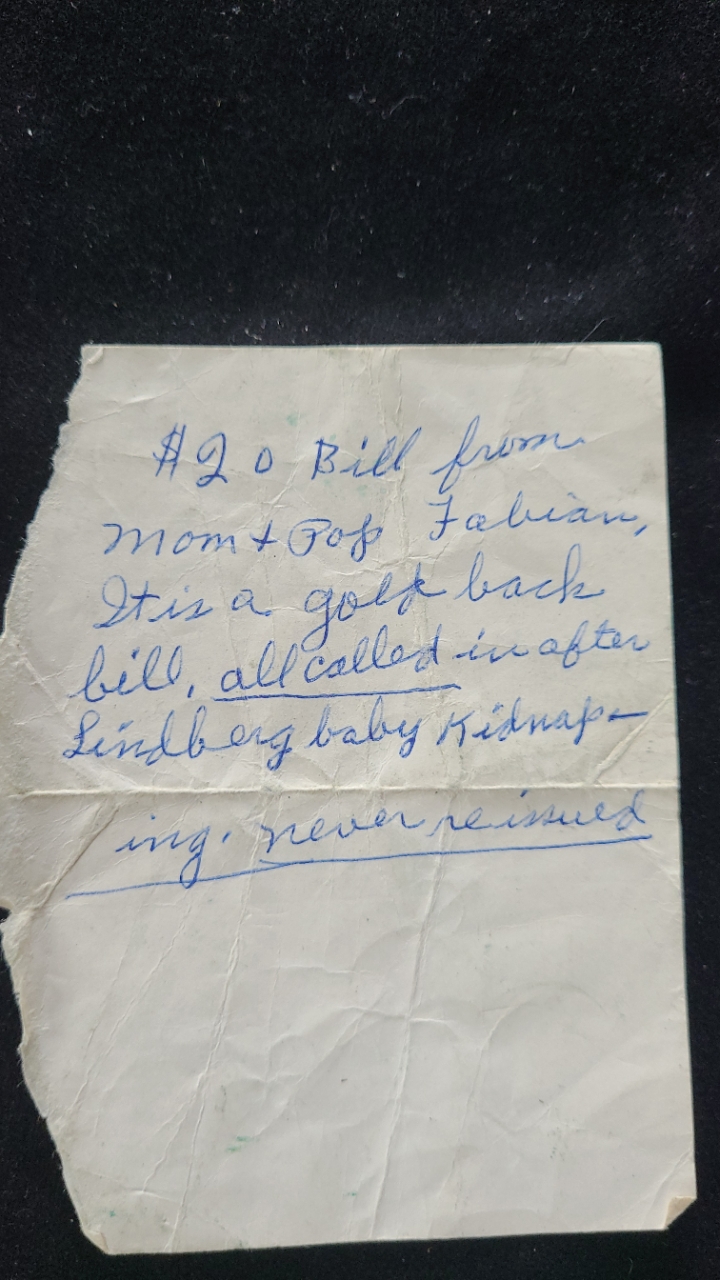 $20 Bill from
Mom + Pop Fabian,
It is a gold back
bill, all called in after
Lindberg baby Kidnap-
ing. never reissued